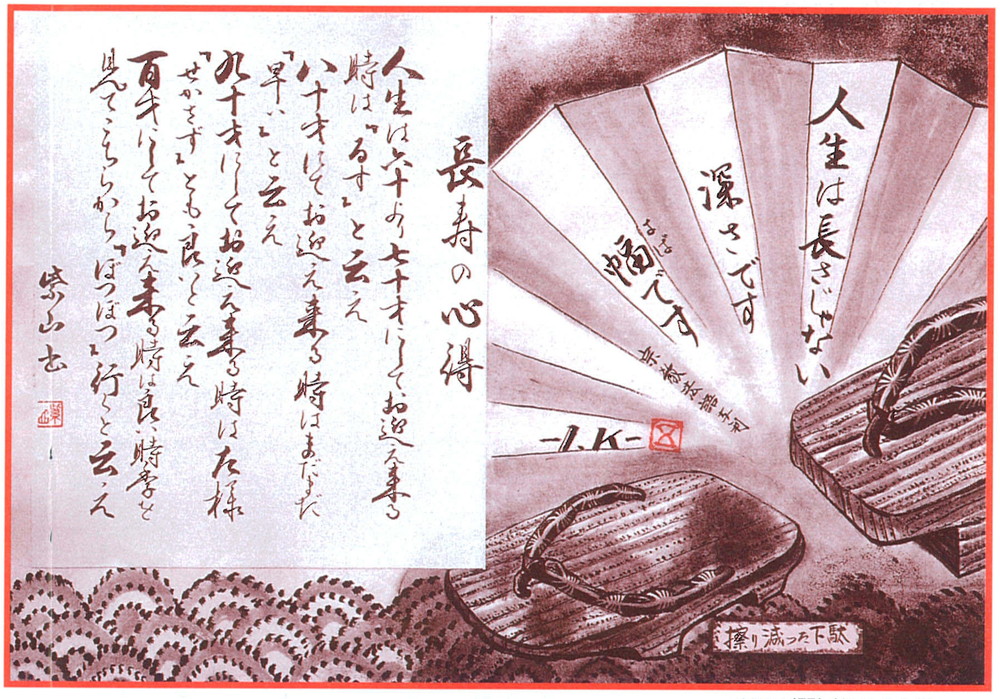 人生は長さじゃない
深さです
はば
幅です
-I.K-
擦り減った下駄
長寿の心得
人生は六十より七十才にしてお迎え来る
時は『るす』と云え
八十才にてお迎え来る時はまだまだ
『早い』と云え
九十才にしてお迎え来る時は左様
『せかさず』とも良いと云え
百才にしてお迎え来る時は良い時季を
見てこちらから『ぼつぼつ』行くと云え
紫山書